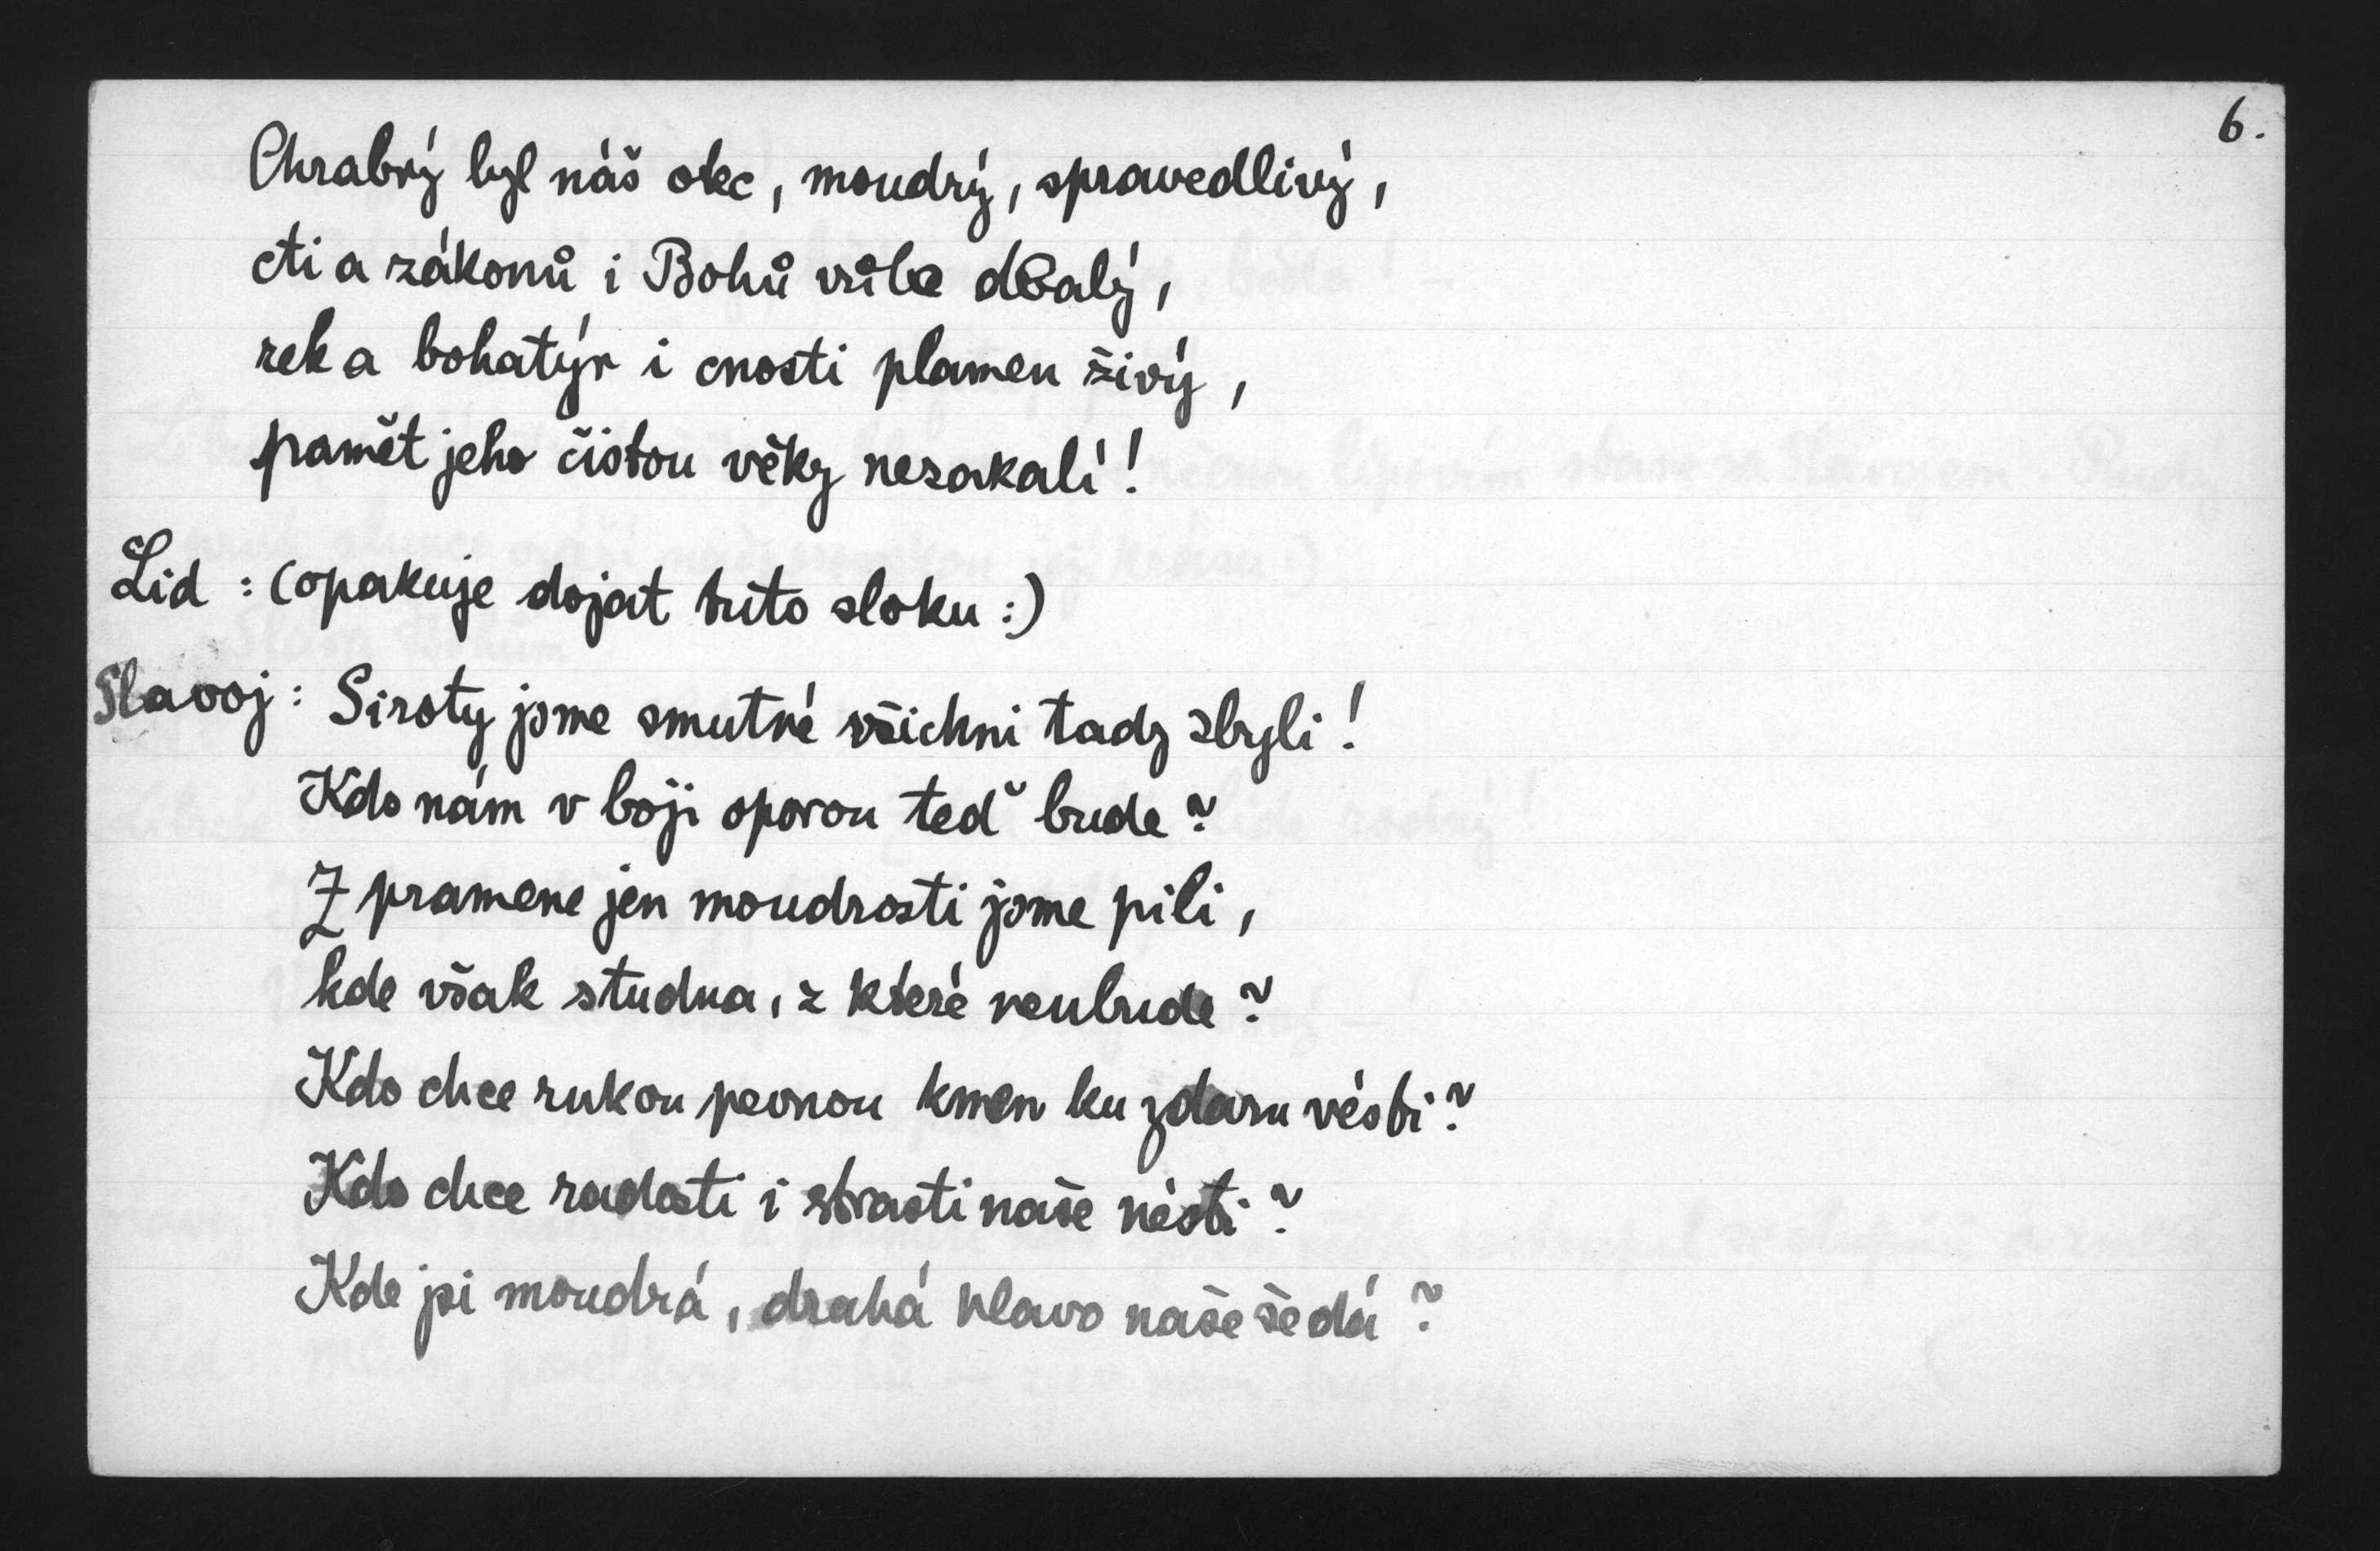 6.
Chrabrý byl náš otec, moudrý, spravedlivý,
cti a zákonů i Bohů vůle dbalý,
rek a bohatýr i cnosti plamen živý,
pamět jeho čistou věky nezakalí!
Lid : (opakuje dojat tuto sloku :)
Slavoj : Siroty jsme smutné všichni tady zbyli!
Kdo nám v boji oporou teď bude?
Z pramene jen moudrosti jsme pili,
kde však studna, z které neubude?
Kdo chce rukou pevnou kmen ku zdaru vésti?
Kdo chce radosti i strasti naše nésti?
Kde jsi moudrá, drahá hlavo naše šedá?